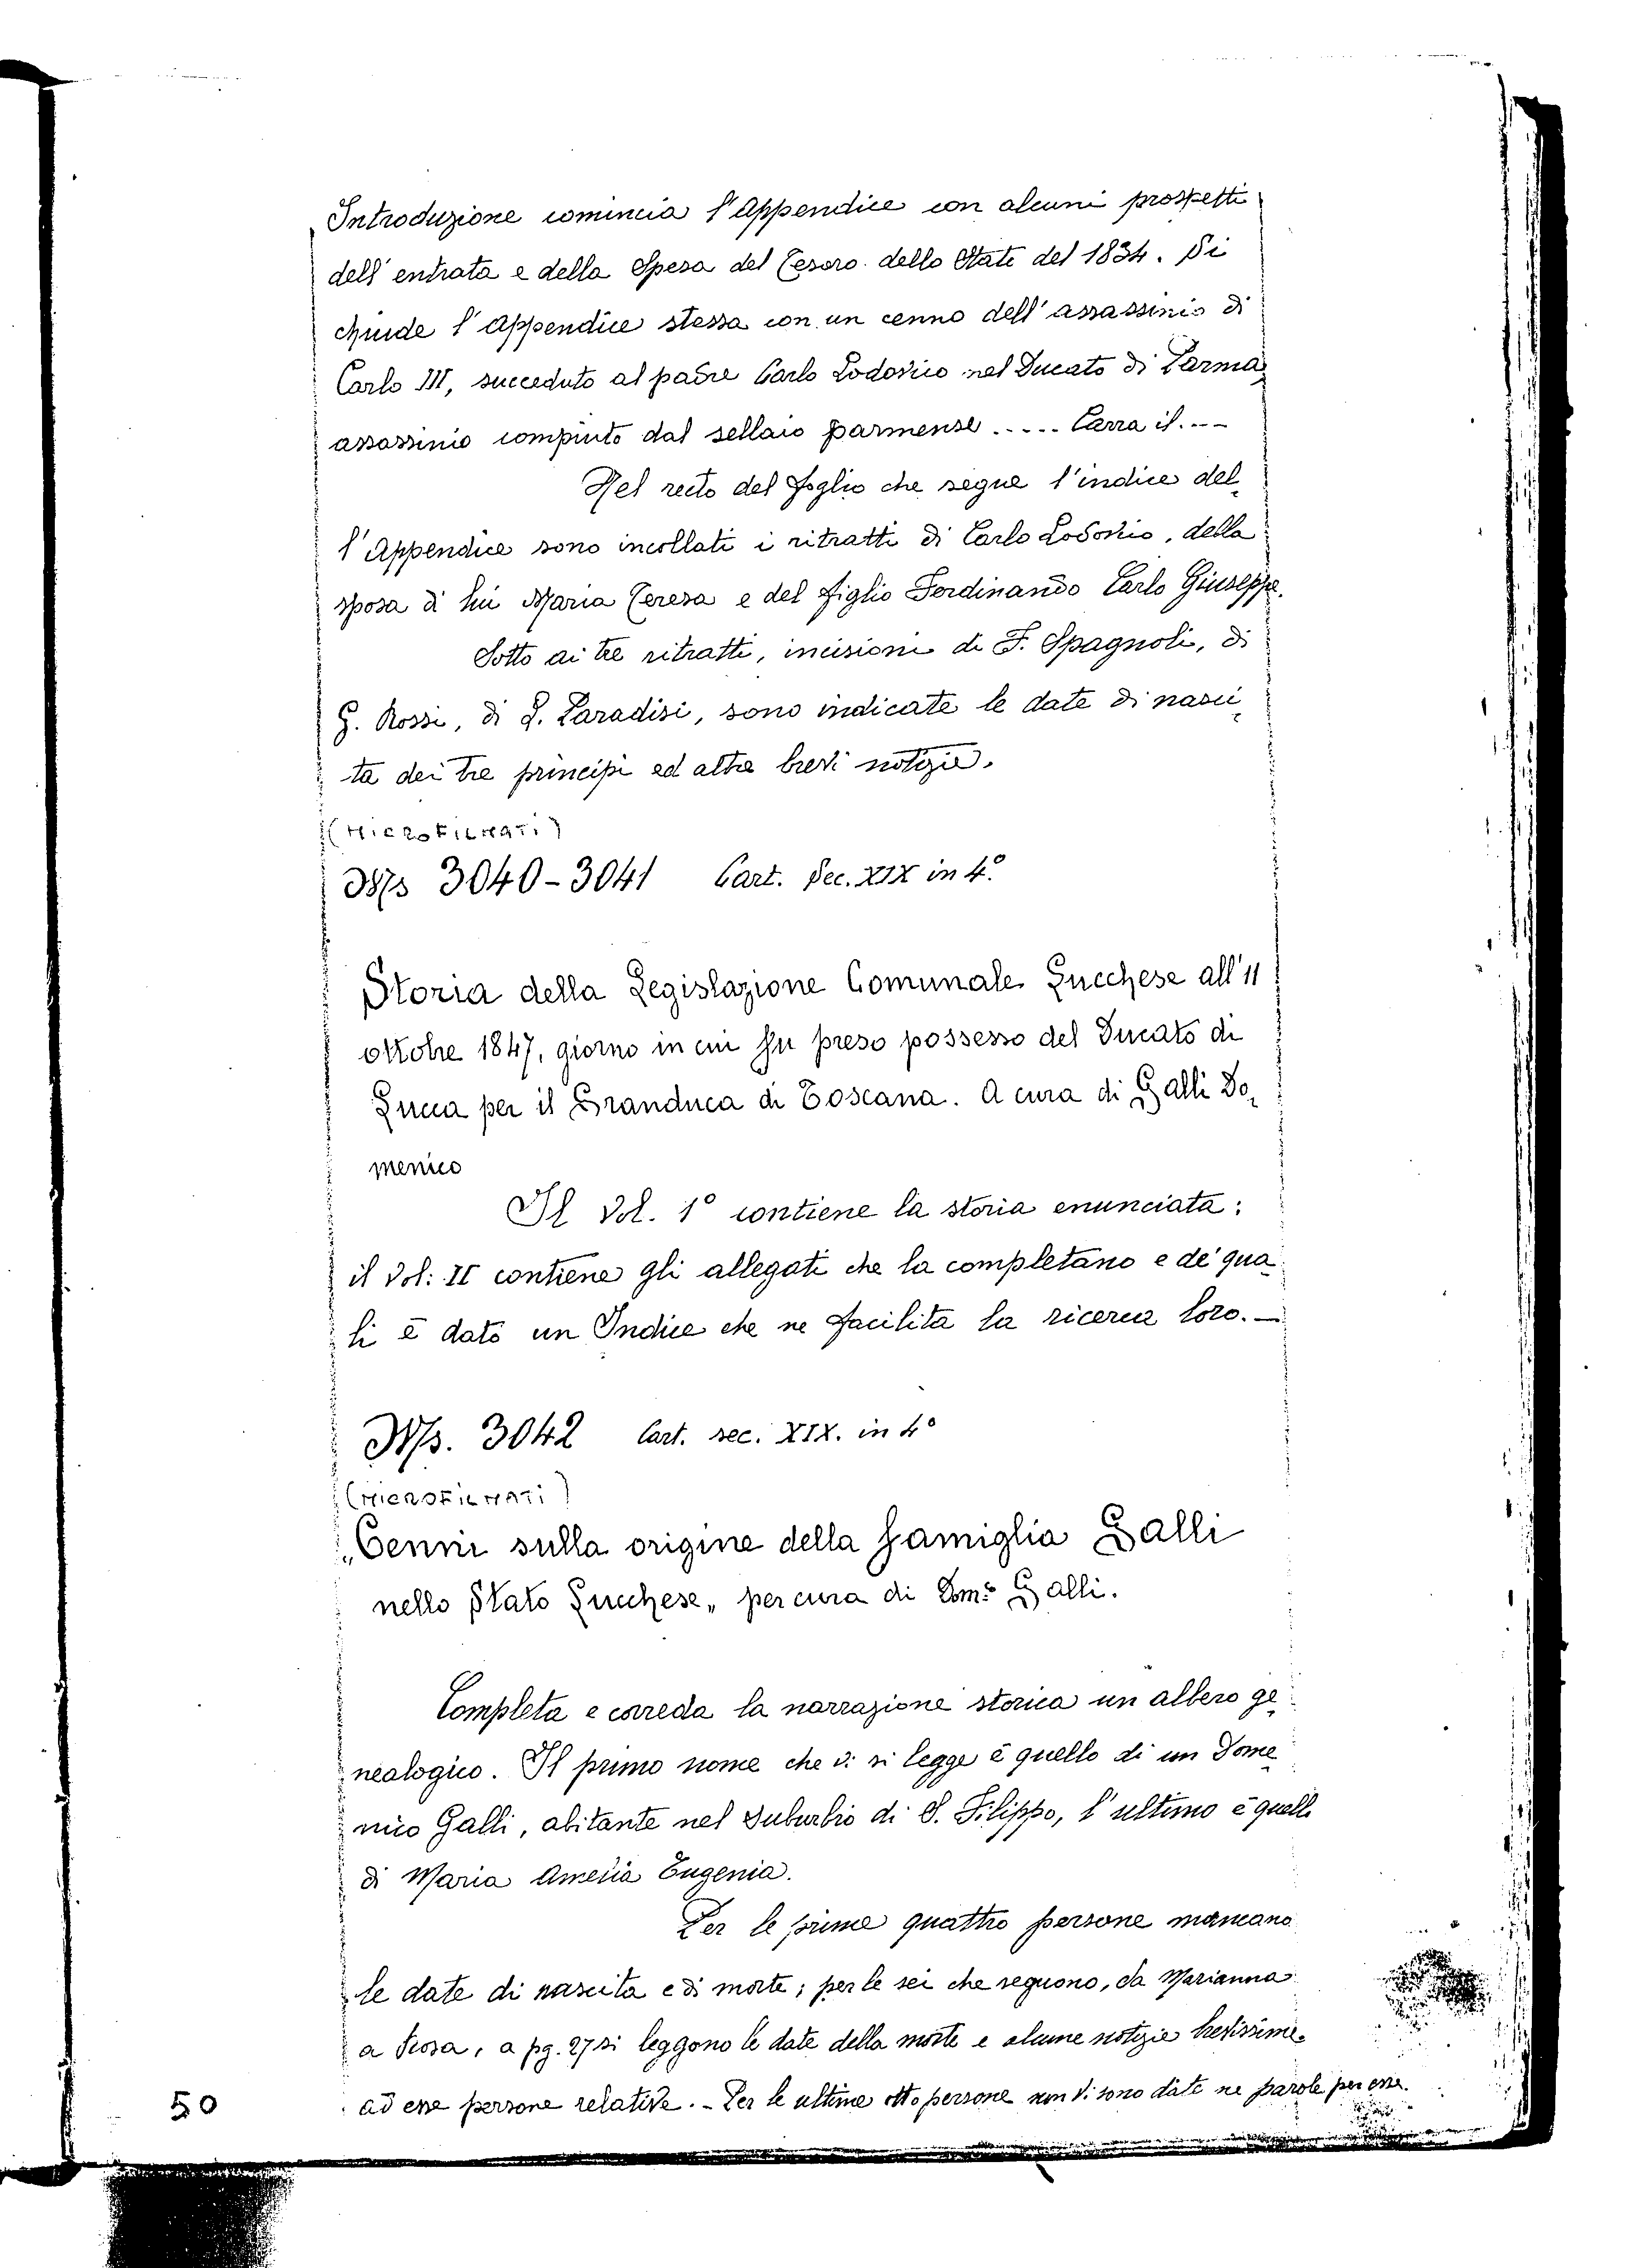 Introduzione comincia l'Appendice con alcuni prospetti
dell'entrata e della Spesa del Tesoro dello Stato del 1834. Si
chiude l'Appendice stessa con un cenno dell'assassinio di
Carlo III, succeduto al padre Carlo Lodovico nel Ducato di Parma,
assassinio compiuto dal sellaio parmense ..... Carra il ....
Nel recto del foglio che segue l'indice del-
l'Appendice sono incollati i ritratti di Carlo Lodovico, della
sposa di lui Maria Teresa e del figlio Ferdinando Carlo Giuseppe.
Sotto ai tre ritratti, incisioni di F. Spagnoli, di
G. Rossi, di L. Paradisi, sono indicate le date di nasci-
ta dei tre principi ed altre brevi notizie.
(MICROFILMATI)
Mss 3040-3041 Cart. Sec. XIX in 4°.
Storia della Legislazione Comunale Lucchese all'11
ottobre 1847, giorno in cui fu preso possesso del Ducato di
Lucca per il Granduca di Toscana. A cura di Galli Do-
menico
Il Vol. 1° contiene la storia enunciata:
il Vol: II contiene gli allegati che la completano e de' qua-
li è dato un Indice che ne facilita la ricerca loro.—
Ms. 3042 Cart. sec. XIX. in 4°
(MICROFILMATI)
"Cenni sulla origine della famiglia Galli
nello Stato Lucchese" per cura di Dom.co Galli.
Completa e correda la narrazione storica un albero ge-
nealogico. Il primo nome che vi si legge è quello di un Dome-
nico Galli, abitante nel Suburbio di S. Filippo, l'ultimo è quello
di Maria Amelia Eugenia.
Per le prime quattro persone mancano
le date di nascita e di morte; per le sei che seguono, da Marianna
a Rosa, a pg. 27 si leggono le date della morte e alcune notizie brevissime
ad esse persone relative. - Per le ultime otto persone non vi sono date ne parole per esse.
50